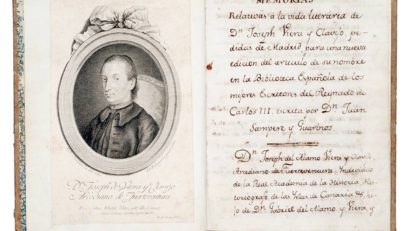 Dn. Joseph de Viera y Clavijo
Arcediano de Fuerteventura
MEMORIAS
Relativas a la vida literaria de
Dn. Joseph Viera y Clavijo, pe-
didas de Madrid para una nueva
edicion del articulo de su nombre
en la Biblioteca Española de los
mejores Escritores del Reynado de
Carlos III. escrita por Dn. Juan
Sempere y Guarinos
Dn. Joseph del Alamo Viera y Clavijo
Arcediano de Fuerteventura, Individuo
de la Real Academia de la Historia, His-
toriografo de las Islas de Canaria &c. hi-
jo de Dn. Gabriel del Alamo y Viera, y